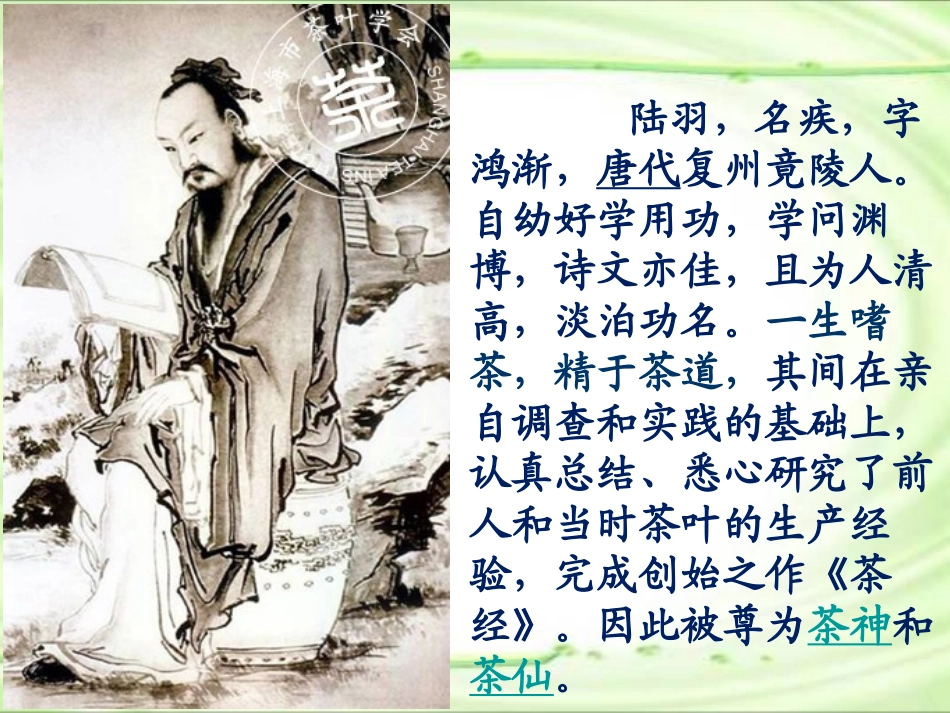 上海市茶叶学会
茶
SHANGHAI TEA INS
陆羽，名疾，字
鸿渐，唐代复州竟陵人。
自幼好学用功，学问渊
博，诗文亦佳，且为人清
高，淡泊功名。一生嗜
茶，精于茶道，其间在亲
自调查和实践的基础上，
认真总结、悉心研究了前
人和当时茶叶的生产经
验，完成创始之作《茶
经》。因此被尊为茶神和
茶仙。